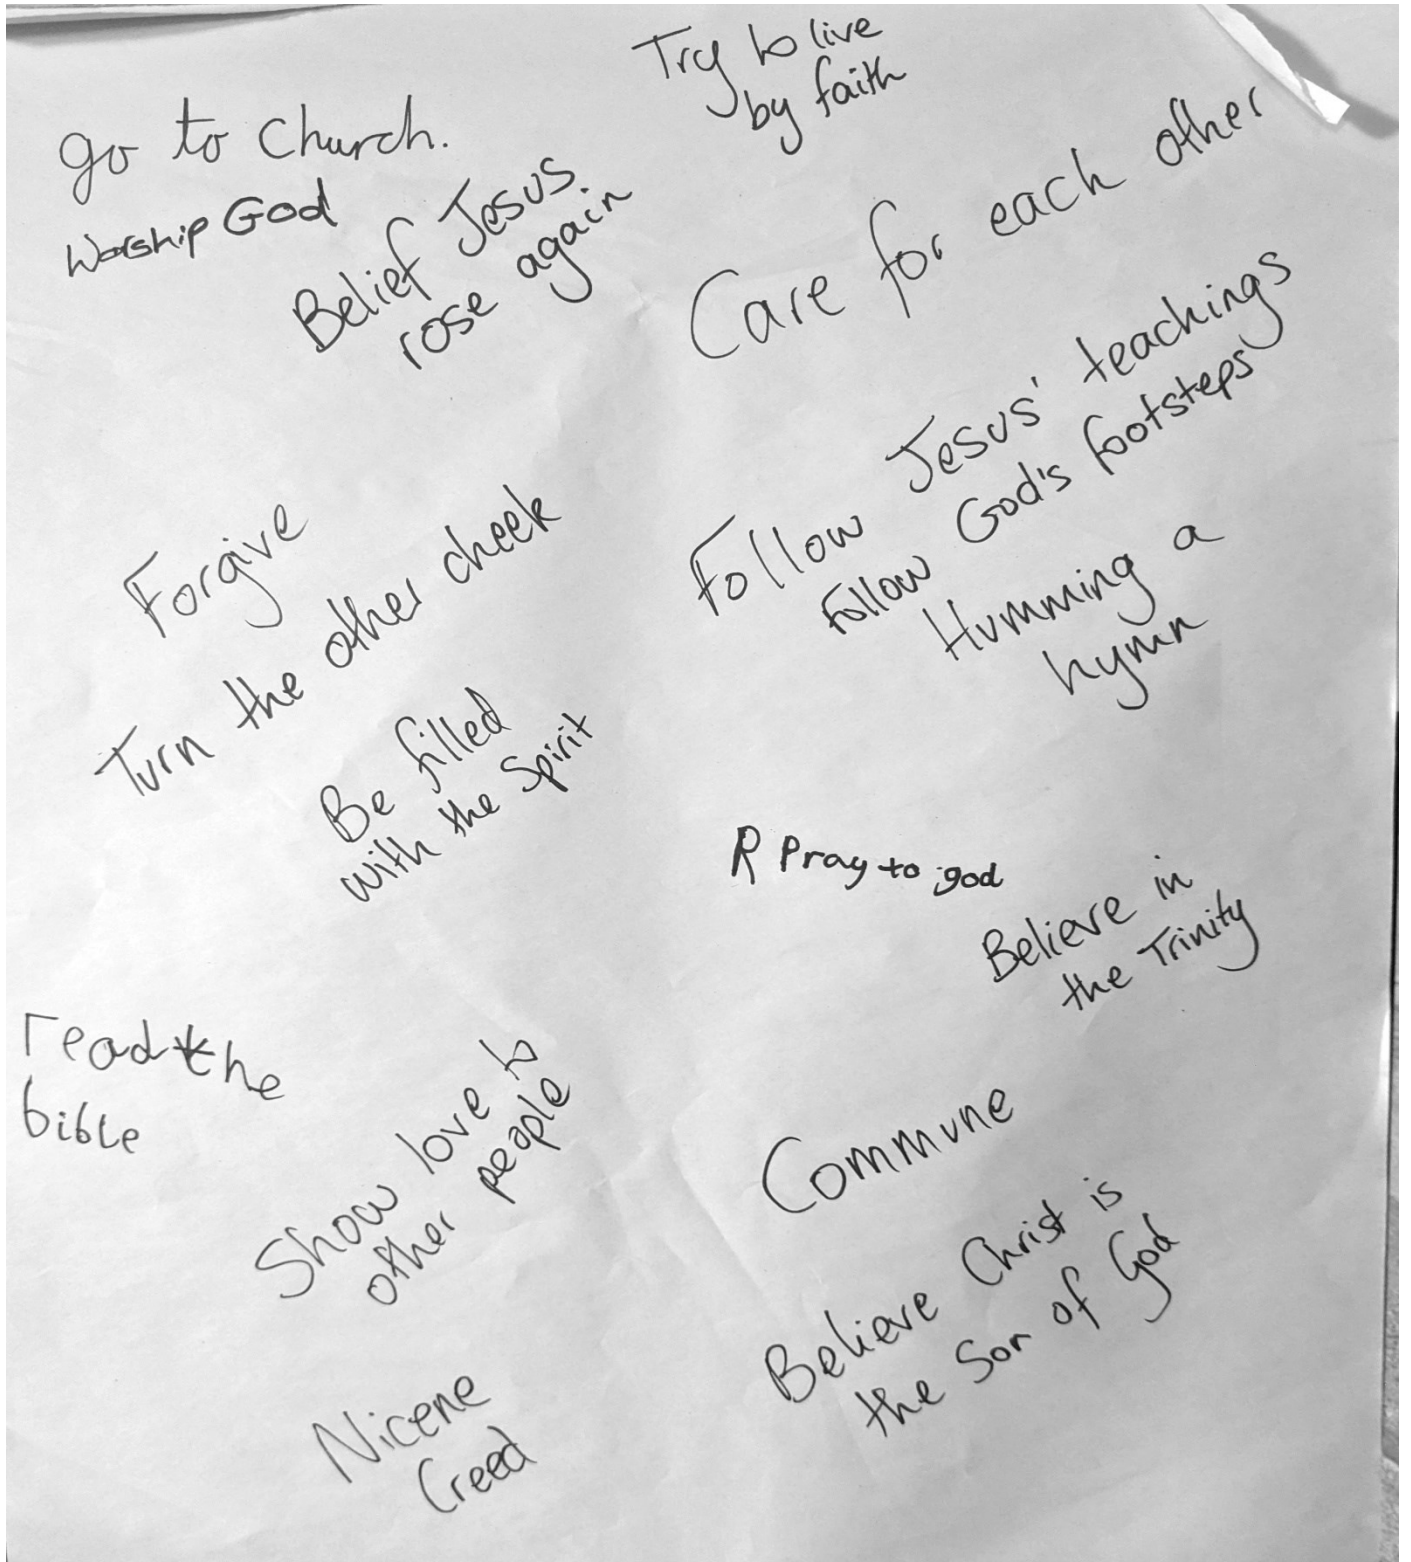 Try to live
by faith
go to church.
Worship God
Belief Jesus
rose again
Care for each other
Follow Jesus' teachings
Follow God's footsteps
Humming a
hymn
Forgive
Turn the other cheek
Be filled
with the Spirit
R Pray to god
Believe in
the Trinity
read the
bible
Show love to
other people
Commune
Believe Christ is
the Son of God
Nicene
Creed